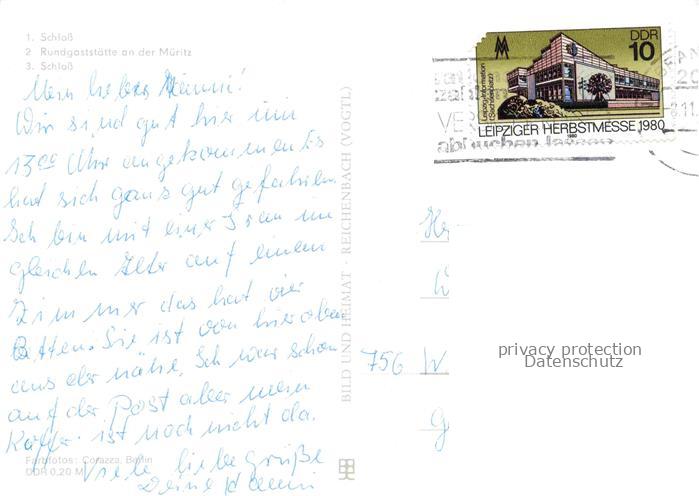 1. Schloß
2 Rundgaststätte an der Müritz
3. Schloß
Mein lieber
Wir sind gut hier um
13.00 Uhr angekommen Es
hat sich ganz gut gefahren.
Ich bin mit einer Frau im
gleichen Alter auf einem
Zimmer das hat vier
Betten. Sie ist von hier oben
aus der nähe. Ich war schon
auf der Post aber mein
Koffer ist noch nicht da.
Viele liebe Grüße
Deine
Farbfotos: Corazza, Berlin
DDR 0,20 M
BILD UND HEIMAT · REICHENBACH (VOGTL)
DDR
10
Leipzig-Information
(Sachsenplatz)
LEIPZIGER HERBSTMESSE 1980
1980
756 W
G
privacy protection
Datenschutz